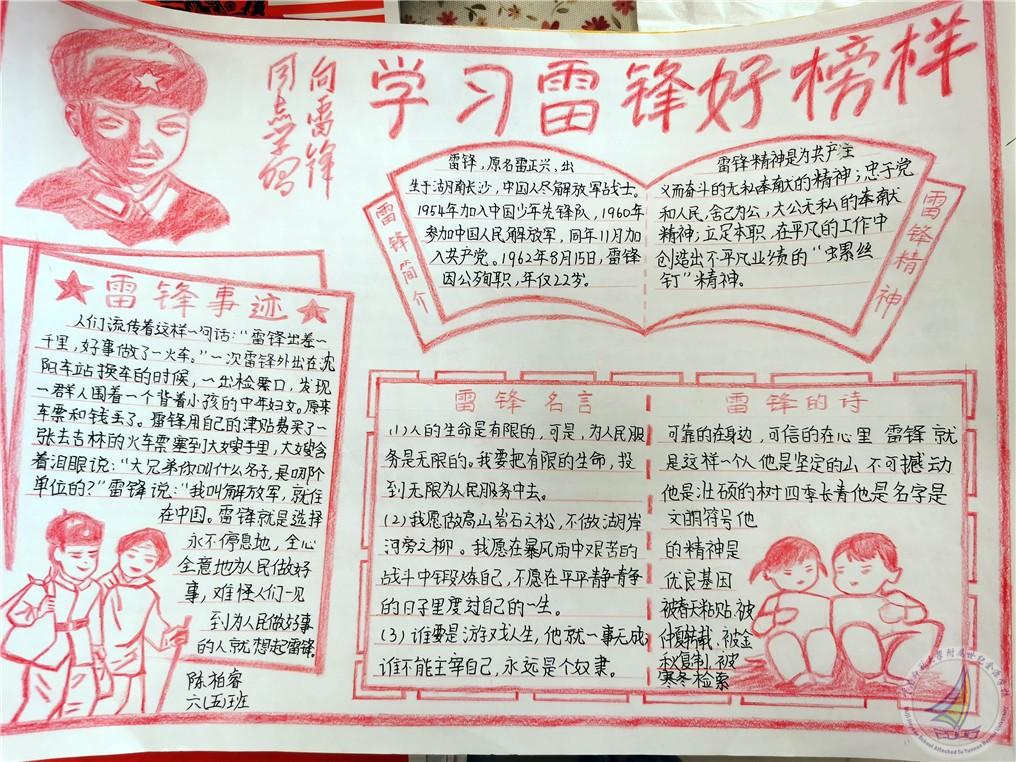 学习雷锋好榜样
向雷锋
同志学习
雷锋简介
雷锋，原名雷正兴，出
生于湖南长沙，中国人民解放军战士。
1954年加入中国少年先锋队，1960年
参加中国人民解放军，同年11月加
入共产党。1962年8月15日，雷锋
因公殉职，年仅22岁。
雷锋精神
雷锋精神是为共产主
义而奋斗的无私奉献的精神；忠于党
和人民，舍己为公，大公无私的奉献
精神；立足本职、在平凡的工作中
创造出不平凡业绩的“虫累丝
钉”精神。
雷锋事迹
人们流传着这样一句话：“雷锋出差一
千里，好事做了一火车。”一次雷锋外出在沈
阳车站换车的时候，一出检票口，发现
一群人围着一个背着小孩的中年妇女。原来
车票和钱丢了。雷锋用自己的津贴费买了一
张去吉林的火车票塞到大嫂手里，大嫂含
着泪眼说：“大兄弟你叫什么名子，是哪个
单位的？”雷锋说：“我叫解放军，就住
在中国。雷锋就是选择
永不停息地，全心
全意地为人民做好
事，难怪人们一见
到为人民做好事
的人就想起雷锋。
陈柏睿
六(五)班
雷锋名言
(1)人的生命是有限的，可是，为人民服
务是无限的。我要把有限的生命，投
到无限为人民服务中去。
(2)我愿做高山岩石之松，不做湖岸
河旁之柳。我愿在暴风雨中艰苦的
战斗中锻炼自己，不愿在平平静静
的日子里度过自己的一生。
(3)谁要是游戏人生，他就一事无成，
谁不能主宰自己，永远是个奴隶。
雷锋的诗
可靠的在身边，可信的在心里 雷锋 就
是这样一个人他是坚定的山 不可撼动
他是壮硕的树四季长青他是名字是
文明符号他
的精神是
优良基因
被春天粘贴 被
仲夏转载、被金
秋复制、被
寒冬检索